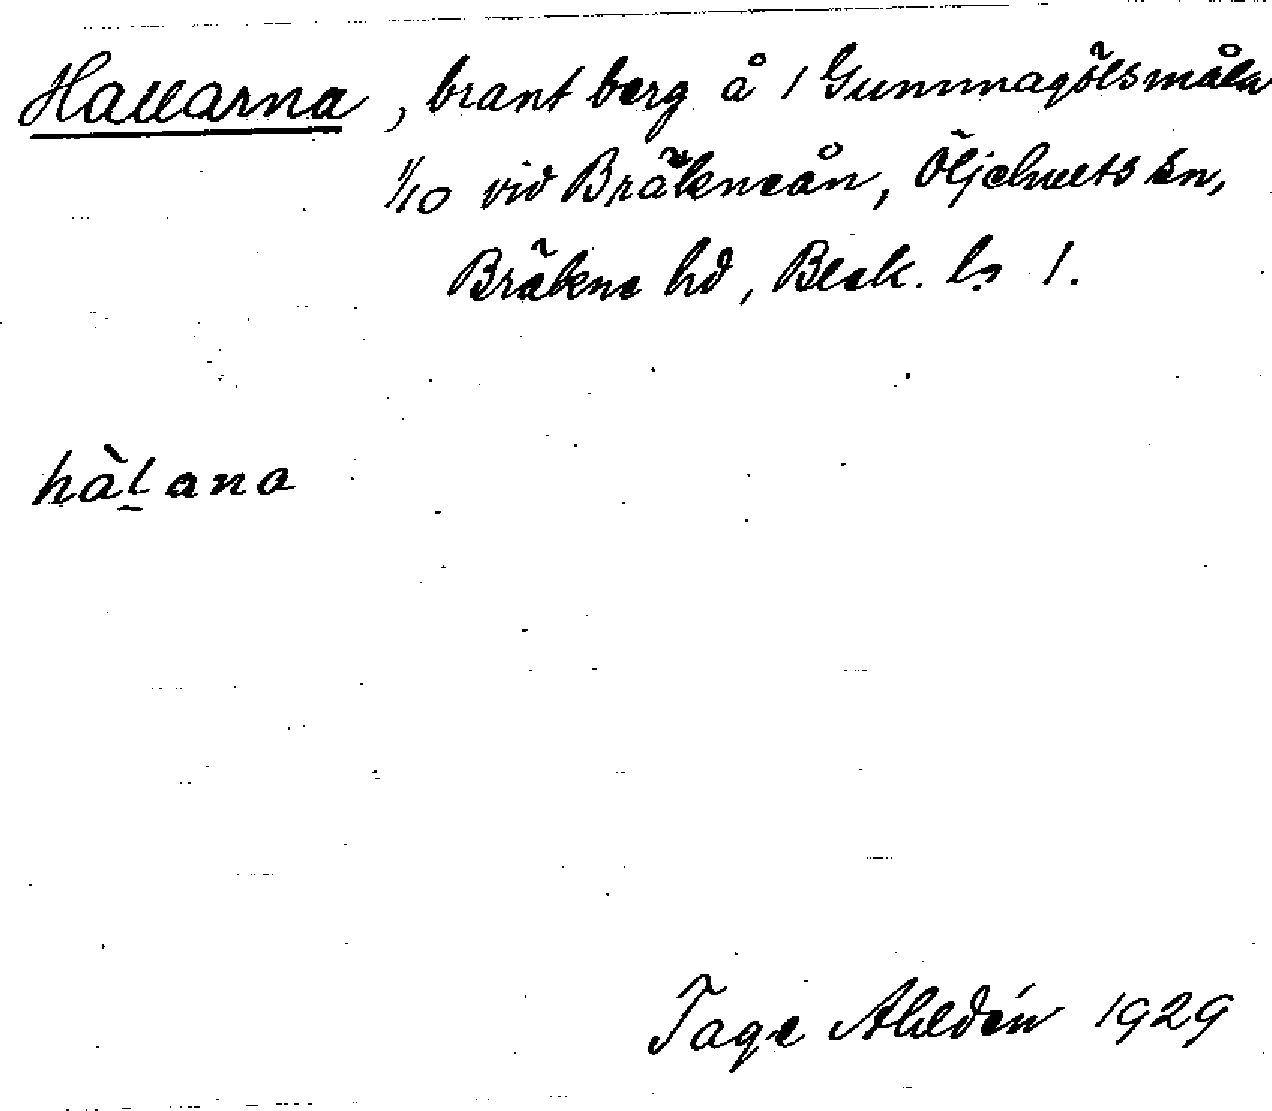 Hallarna, brant berg å 1 Gummagölsmåla
1/10 vid Bräkneån, Öljehults sn,
Bräkne hd, Blek. l. 1.
hàl̠ana
Tage Ahldén 1929